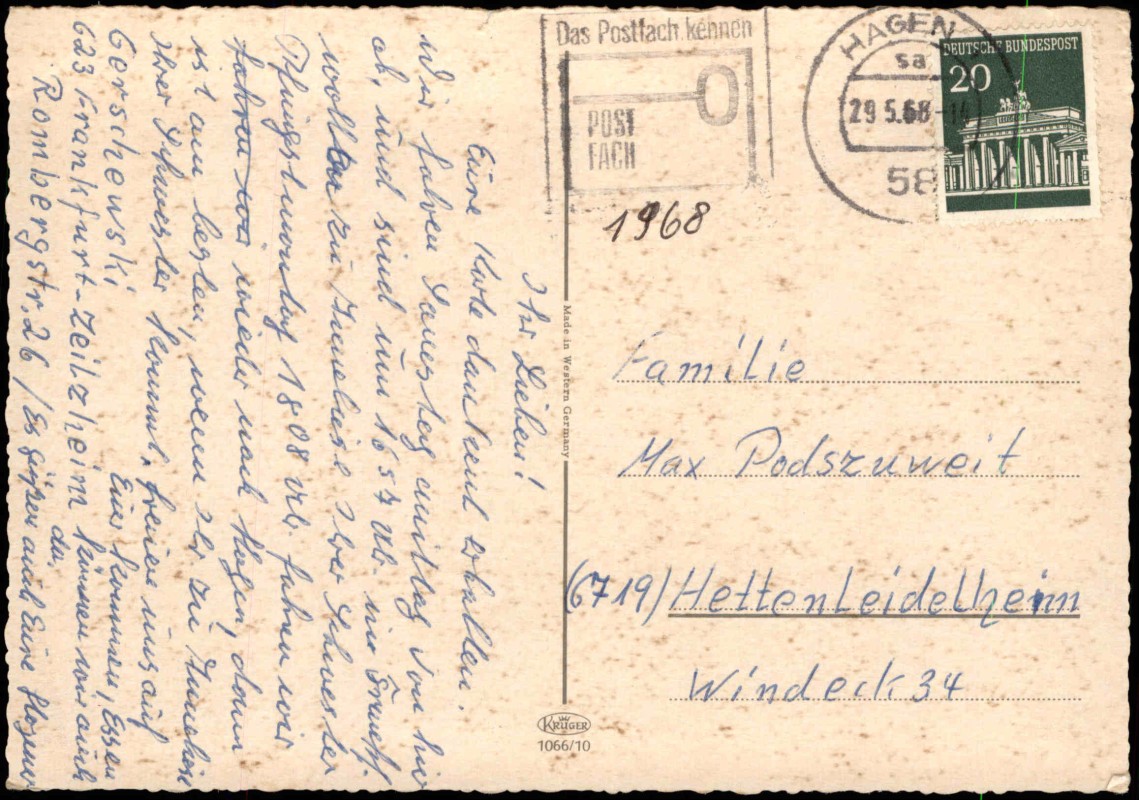 Das Postfach kennen
POST
FACH
HAGEN
sa
29.5.68-14
58
DEUTSCHE BUNDESPOST
20
1968
Ihr Lieben!
Eure Karte dankend erhalten.
Wir fahren Samstag mittag von hier
ab, und sind um 16 57 Uhr in Frankf.
wollten zu Ihrer Schwester
Pfingstmontag 18 08 Uhr. fahren wir
wieder nach Hagen, dann
ist am besten, wenn Ihr zu
Ihrer Schwester kommt, freuen uns auf
Euer kommen, Essen
können wir auch
da.
Gerschewski
623 Frankfurt-Zeilzheim
Rombergstr. 26 / Es grüßen auch Eure Hagener
Made in Western Germany
Familie
Max Podszuweit
(6719) Hettenleidelheim
Windeck 34
KRÜGER
1066/10